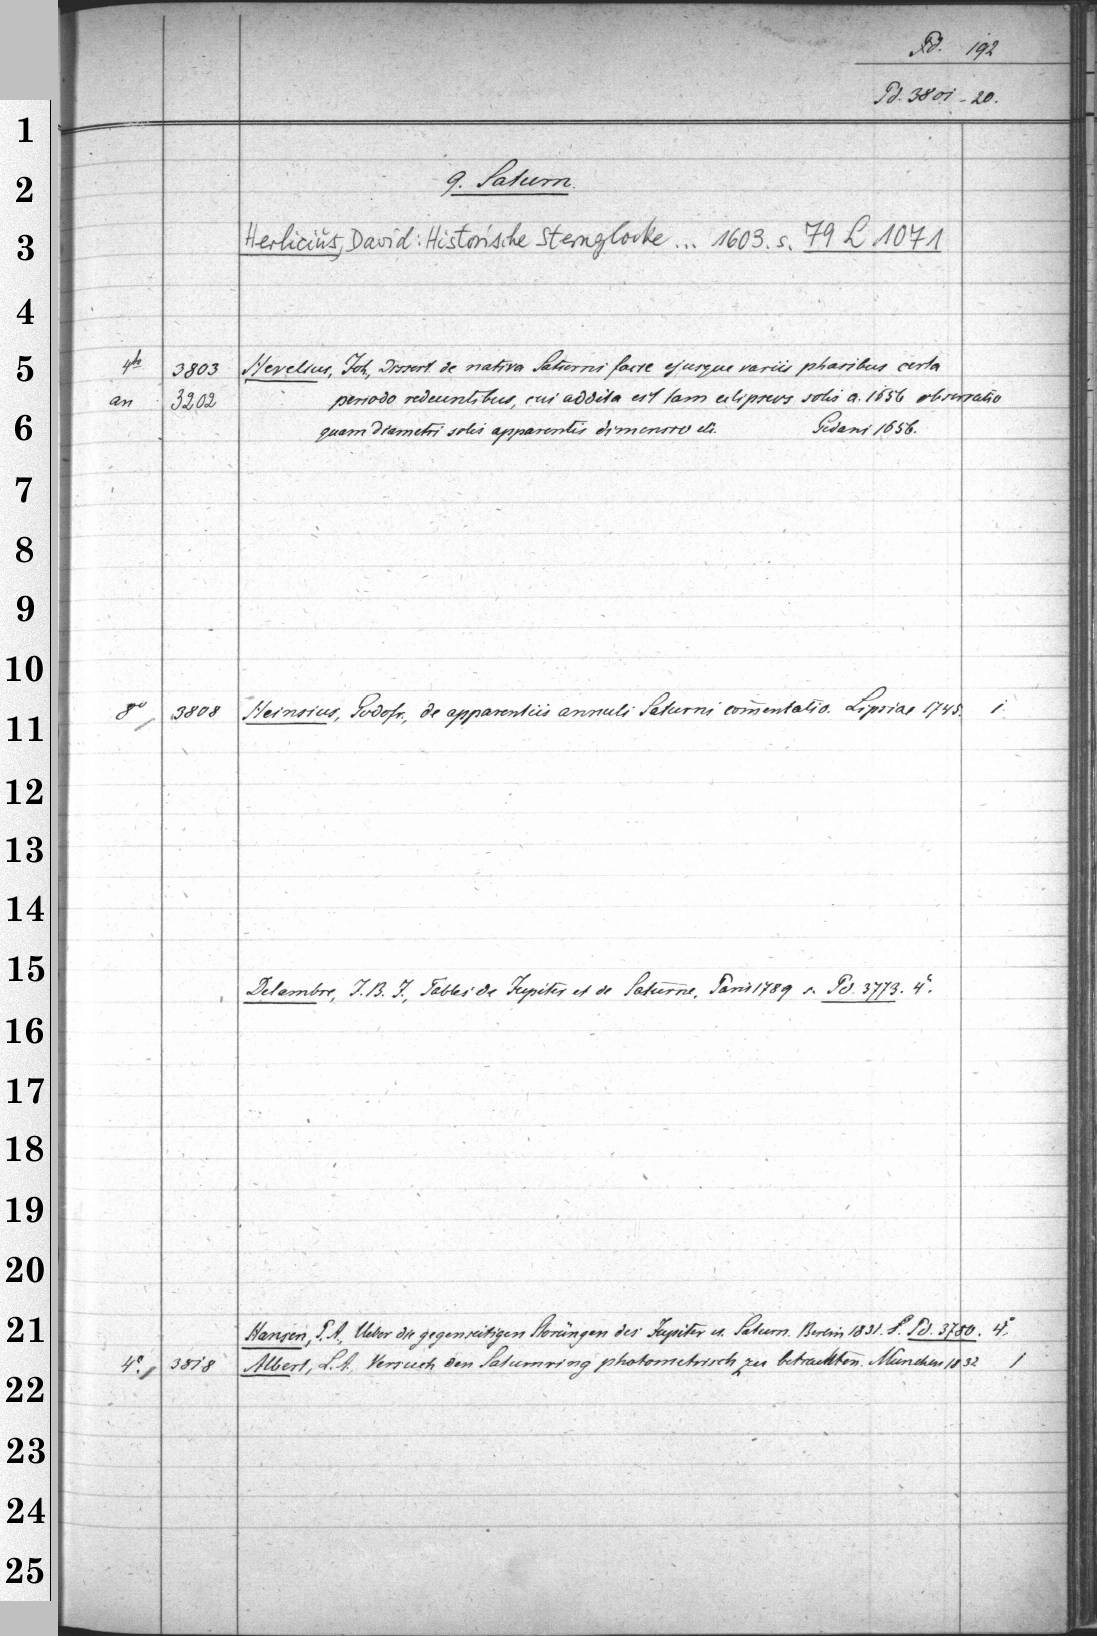 Pd. 192
Pd. 3801-20.
9. Saturn.
Herlicius, David: Historische Sternglocke ... 1603. s. 79 L 1071
4to 3803 Hevelius, Joh., Dissert. de nativa Saturni facie ejusque variis phasibus certa
an 3202 periodo redeuntibus, cui addita est tam eclipseos solis a. 1656 observatio
quam diametri solis apparentis dimensio etc. Gedani 1656.
8o 3808 Heinsius, Godofr., de apparentiis annuli Saturni com̅entatio. Lipsiae 1745. 1
Delambre, J. B. J., Tables de Jupiter et de Saturne, Paris 1789 s. Pd. 3773. 4°.
Hansen, P. A., Ueber die gegenseitigen Störungen des Jupiter u. Saturn. Berlin 1831. s. Pd. 3780. 4°.
4°. 3818 Albert, L. A. Versuch den Saturnring photometrisch zu betrachten. München 1832 1
1
2
3
4
5
6
7
8
9
10
11
12
13
14
15
16
17
18
19
20
21
22
23
24
25